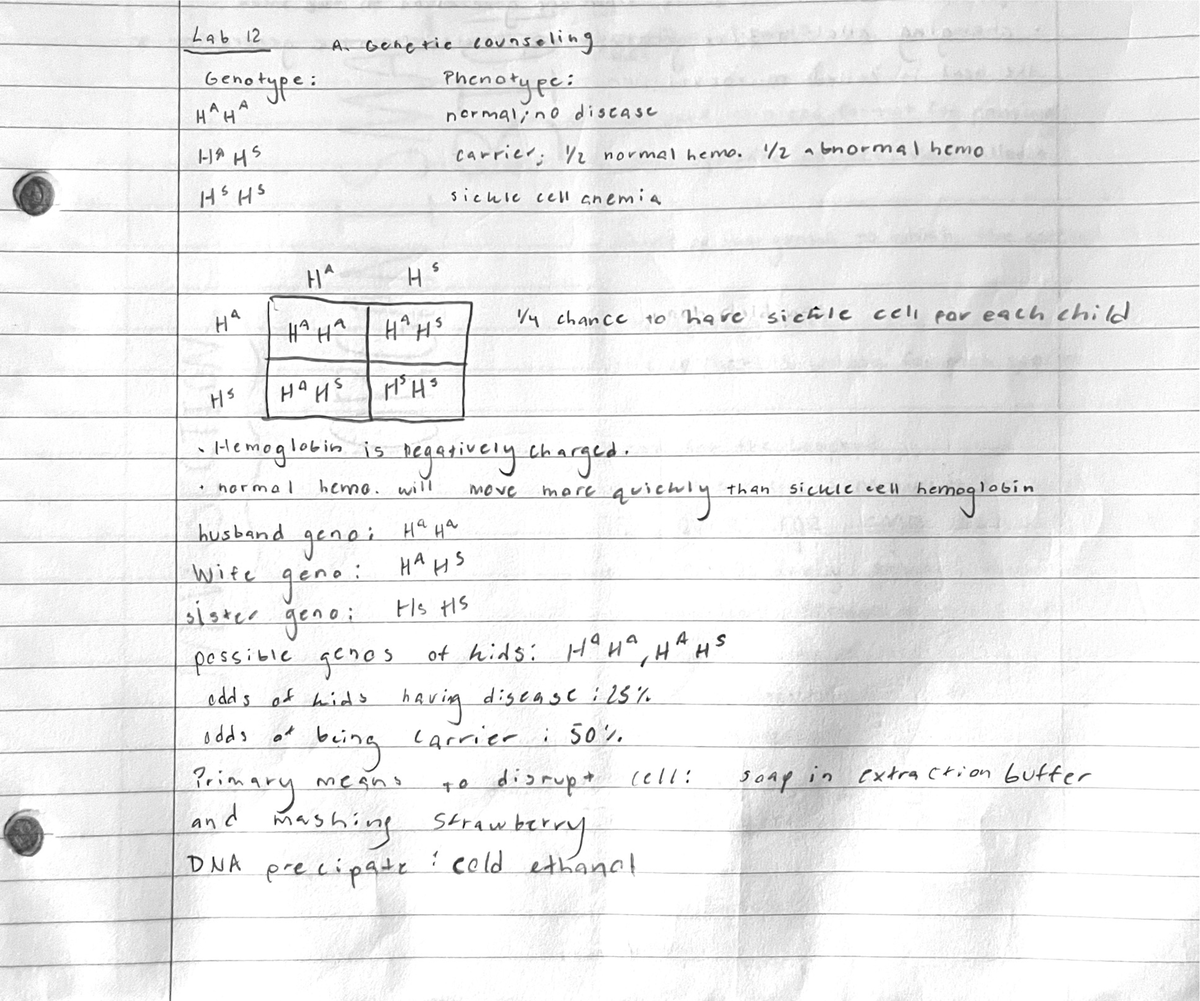 Lab 12 A. Genetic counseling
Genotype: Phenotype:
H^A H^A normal; no disease
H^A H^S carrier; 1/2 normal hemo. 1/2 abnormal hemo
H^S H^S sickle cell anemia
H^A H^S
H^A H^A H^A H^A H^S 1/4 chance to have sickle cell for each child
H^S H^A H^S H^S H^S
· Hemoglobin is negatively charged.
· normal hemo. will move more quickly than sickle cell hemoglobin
husband geno: H^a H^a
Wife geno: H^A H^S
sister geno: Hs HS
possible genos of kids: H^a H^a, H^A H^S
odds of kids having disease: 25%
odds of being carrier: 50%
Primary means to disrupt cell: soap in extraction buffer
and mashing strawberry
DNA precipate: cold ethanol